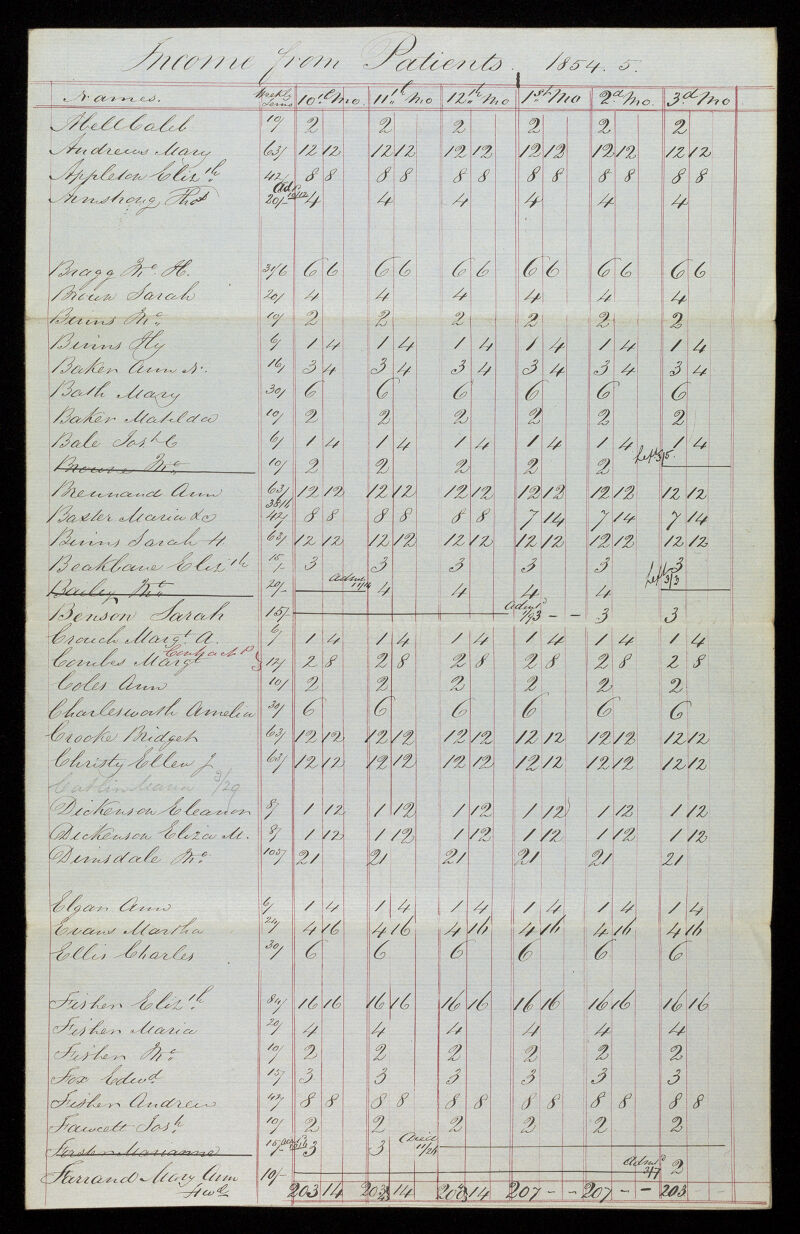 Income from Patients. 1854.5.
Names. Weekly Terms 10th Mo 11th Mo 12th Mo 1st Mo 2d Mo. 3d Mo
Abell Caleb 10/ 2 2 2 2 2 2
Andrews Mary 63/ 12 12 12 12 12 12 12 12 12 12 12 12
Appleton Elizth 42/ 8 8 8 8 8 8 8 8 8 8 8 8
Armstrong Thos 20/- Ad. 10/12 4 4 4 4 4 4
Bragg Wm H. 31/6 6 6 6 6 6 6 6 6 6 6 6 6
Brown Sarah 20/ 4 4 4 4 4 4
Binns Wm 10/ 2 2 2 2 2 2
Binns Hy 6/ 1 4 1 4 1 4 1 4 1 4 1 4
Baker Ann N. 16/ 3 4 3 4 3 4 3 4 3 4 3 4
Bath Mary 30/ 6 6 6 6 6 6
Baker Matilda 10/ 2 2 2 2 2 2
Bale Josh C 6/ 1 4 1 4 1 4 1 4 1 4 1 4
Browne Wm 10/ 2 2 2 2 2 Left 3/5.
Brennand Ann 63/ 12 12 12 12 12 12 12 12 12 12 12 12
Baxter Maria &c 38/6 42/ 8 8 8 8 8 8 7 14 7 14 7 14
Binns Sarah H 63/ 12 12 12 12 12 12 12 12 12 12 12 12
Beakbane Elizth 15/- 3 3 3 3 3 3
Bailey Wm 20/- Admd 11/14 4 4 4 4 Left 3/3
Benson Sarah 15/- Admd 1/93 - - 3 3
Crouch Margt A. 6/ 1 4 1 4 1 4 1 4 1 4 1 4
Combes Margt Contract 12/ 2 8 2 8 2 8 2 8 2 8 2 8
Coles Ann 10/ 2 2 2 2 2 2
Charlesworth Amelia 30/ 6 6 6 6 6 6
Crooke Bridget 63/ 12 12 12 12 12 12 12 12 12 12 12 12
Christy Ellen J 63/ 12 12 12 12 12 12 12 12 12 12 12 12
3/29
Dickenson Eleanor 8/ 1 12 1 12 1 12 1 12 1 12 1 12
Dickenson Eliza M. 8/ 1 12 1 12 1 12 1 12 1 12 1 12
Dimsdale Wm 105/ 21 21 21 21 21 21
Elgar Ann 6/ 1 4 1 4 1 4 1 4 1 4 1 4
Evans Martha 24/ 4 16 4 16 4 16 4 16 4 16 4 16
Ellis Charles 30/ 6 6 6 6 6 6
Fisher Elizth 84/ 16 16 16 16 16 16 16 16 16 16 16 16
Fisher Maria 20/ 4 4 4 4 4 4
Fisher Wm 10/ 2 2 2 2 2 2
Fox Edwd 15/ 3 3 3 3 3 3
Fisher Andrew 42/ 8 8 8 8 8 8 8 8 8 8 8 8
Fawcett Josh 10/ 2 2 2 2 2 2
Forster Marianne 15/- 3 3 Died 11/24
Farrand Mary Ann 10/- Admd 3/7 2
Fwd 203 14 203 14 203 14 207 - - 207 - - 203 - -